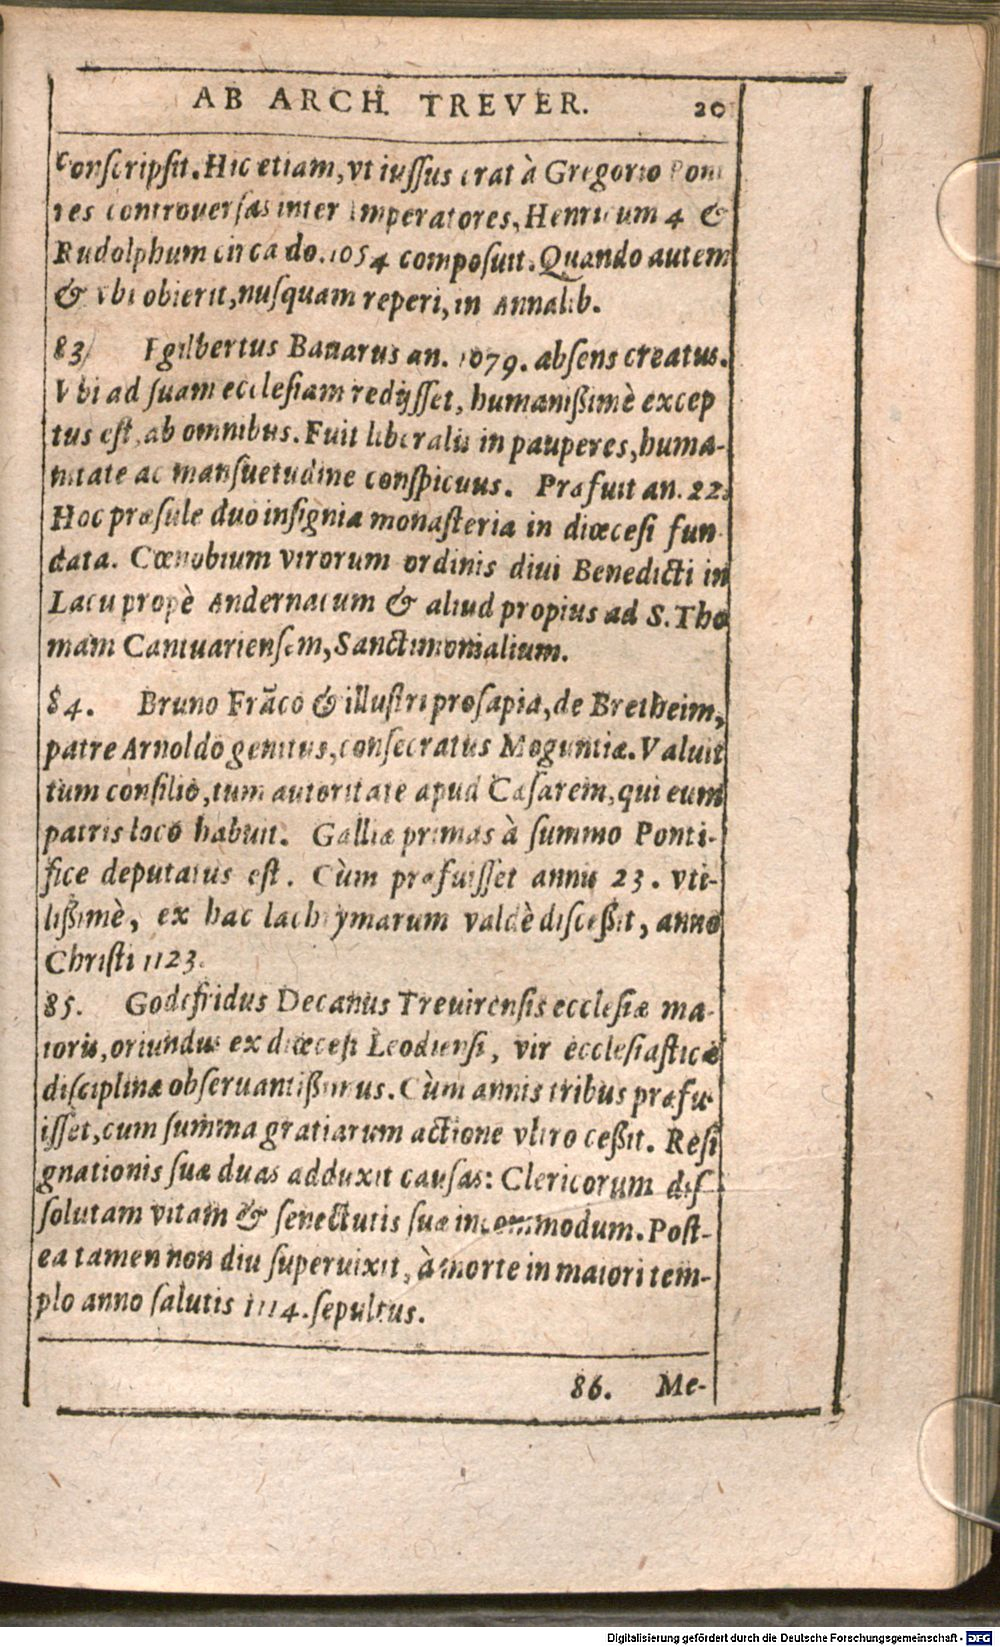 AB ARCH. TREVER. 20
conſcripſit. Hic etiam, vt iuſſus erat à Gregorio Pont
res controuerſas inter Imperatores, Henricum 4 &
Rudolphum circa do. 1054 compoſuit. Quando autem
& vbi obierit, nuſquam reperi, in Annalib.
83 Egilbertus Bauarus an. 1079. abſens creatus.
Vbi ad ſuam eccleſiam redijſſet, humaniſſimè excep
tus eſt, ab omnibus. Fuit liberalis in pauperes, huma-
nitate ac manſuetudine conſpicuus. Præfuit an. 22.
Hoc præſule duo inſignia monaſteria in diœceſi fun
data. Cœnobium virorum ordinis diui Benedicti in
Lacu propè Andernacum & aliud propius ad S. Tho
mam Cantuarienſem, Sanctimonialium.
84. Bruno Frãco & illuſtri proſapia, de Bretheim,
patre Arnoldo genitus, conſecratus Moguntiæ. Valuit
tum conſilio, tum autoritate apud Cæſarem, qui eum
patris loco habuit. Galliæ primas à ſummo Ponti-
fice deputatus eſt. Cùm præfuiſſet annis 23. vti-
liſſimè, ex hac lachrymarum valdè diſceſſit, anno
Chriſti 1123.
85. Godefridus Decanus Treuirenſis eccleſiæ ma-
ioris, oriundus ex diœceſi Leodienſi, vir eccleſiaſticæ
diſciplinæ obſeruantiſſimus. Cùm annis tribus præfu-
iſſet, cum ſumma gratiarum actione vltro ceſſit. Reſi
gnationis ſuæ duas adduxit cauſas: Clericorum diſ
ſolutam vitam & ſenectutis ſuæ incommodum. Poſt-
ea tamen non diu ſuperuixit, à morte in maiori tem-
plo anno ſalutis 1114. ſepultus.
86. Me-
Digitalisierung gefördert durch die Deutsche Forschungsgemeinschaft - DFG